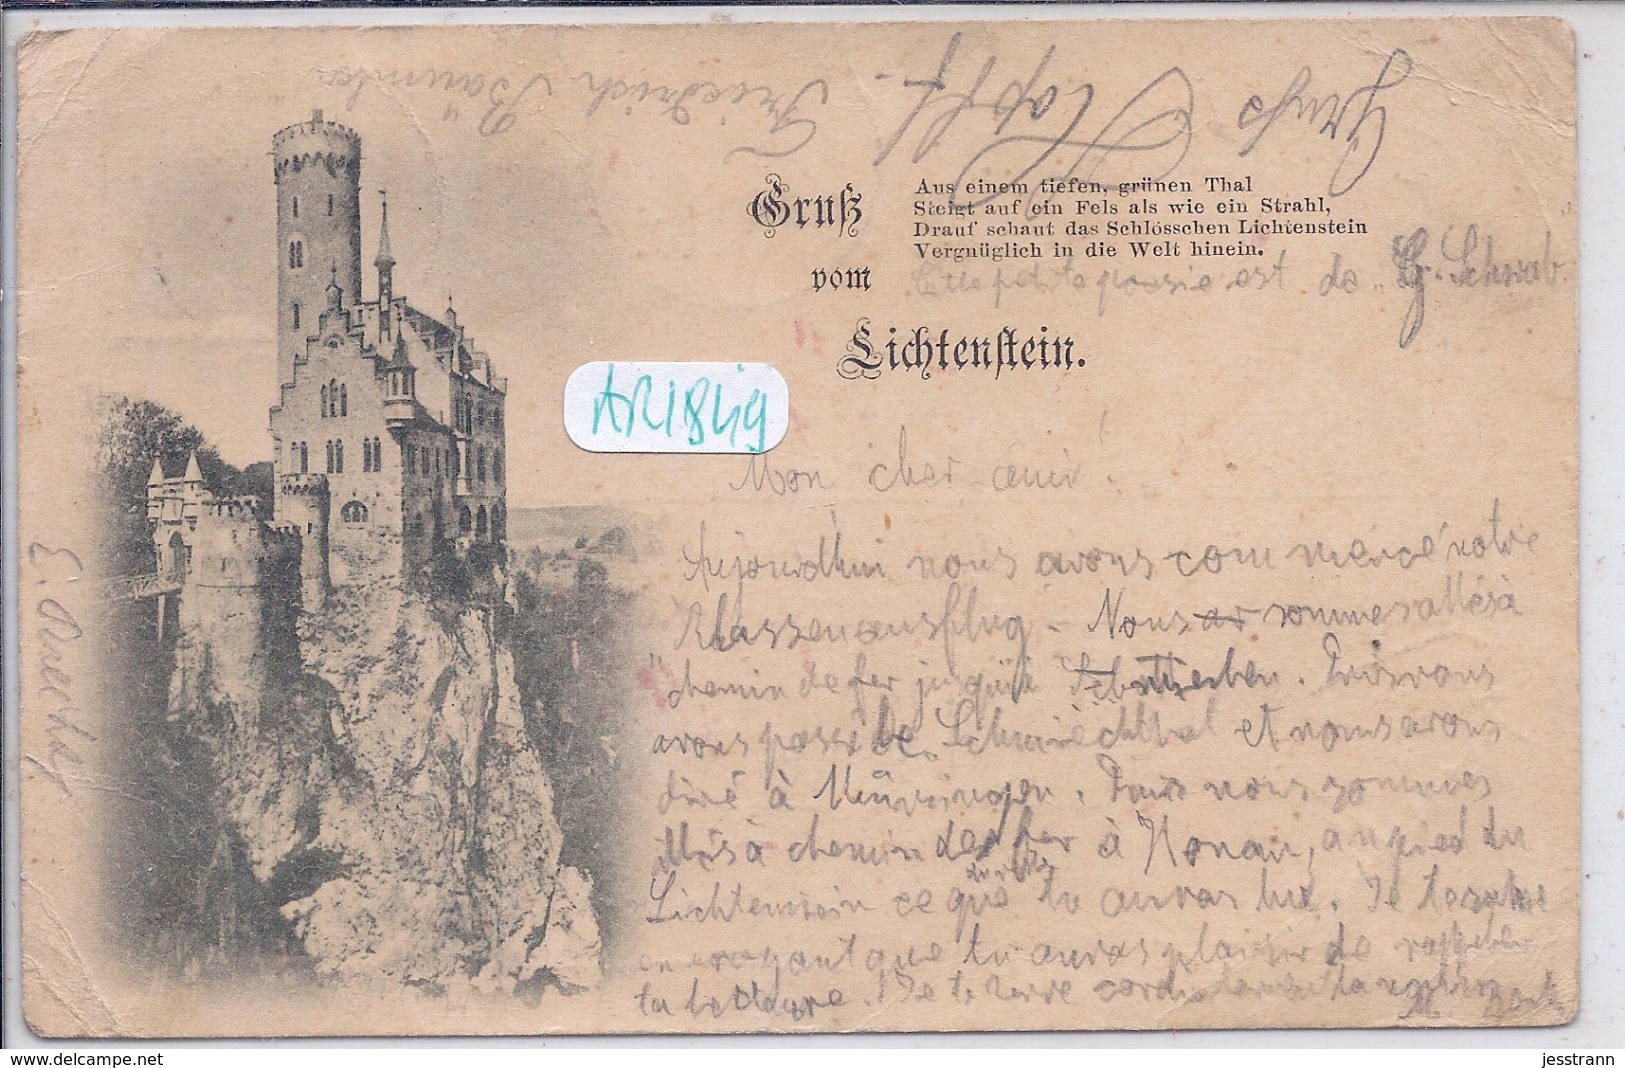 Gruß Klapff.
Friedrich Bäumle
Gruß
vom
Lichtenstein.
Aus einem tiefen, grünen Thal
Steigt auf ein Fels als wie ein Strahl,
Drauf schaut das Schlösschen Lichtenstein
Vergnüglich in die Welt hinein.
Cette petite poesie est de G. Schwab.
AR1849
Mon cher ami!
Aujourd'hui nous avons commencé notre
Klassenausflug. Nous sommes allés à
chemin de fer jusqu'à. Puis nous
avons passé le Schmiechthal et nous avons
diné à Münsingen. Puis nous sommes
allés à chemin de fer à Honau, au pied du
Lichtenstein ce que tu auras lu. Je te salue
en croyant que tu auras plaisir de
ta. Je te serre cordialement la main
E.